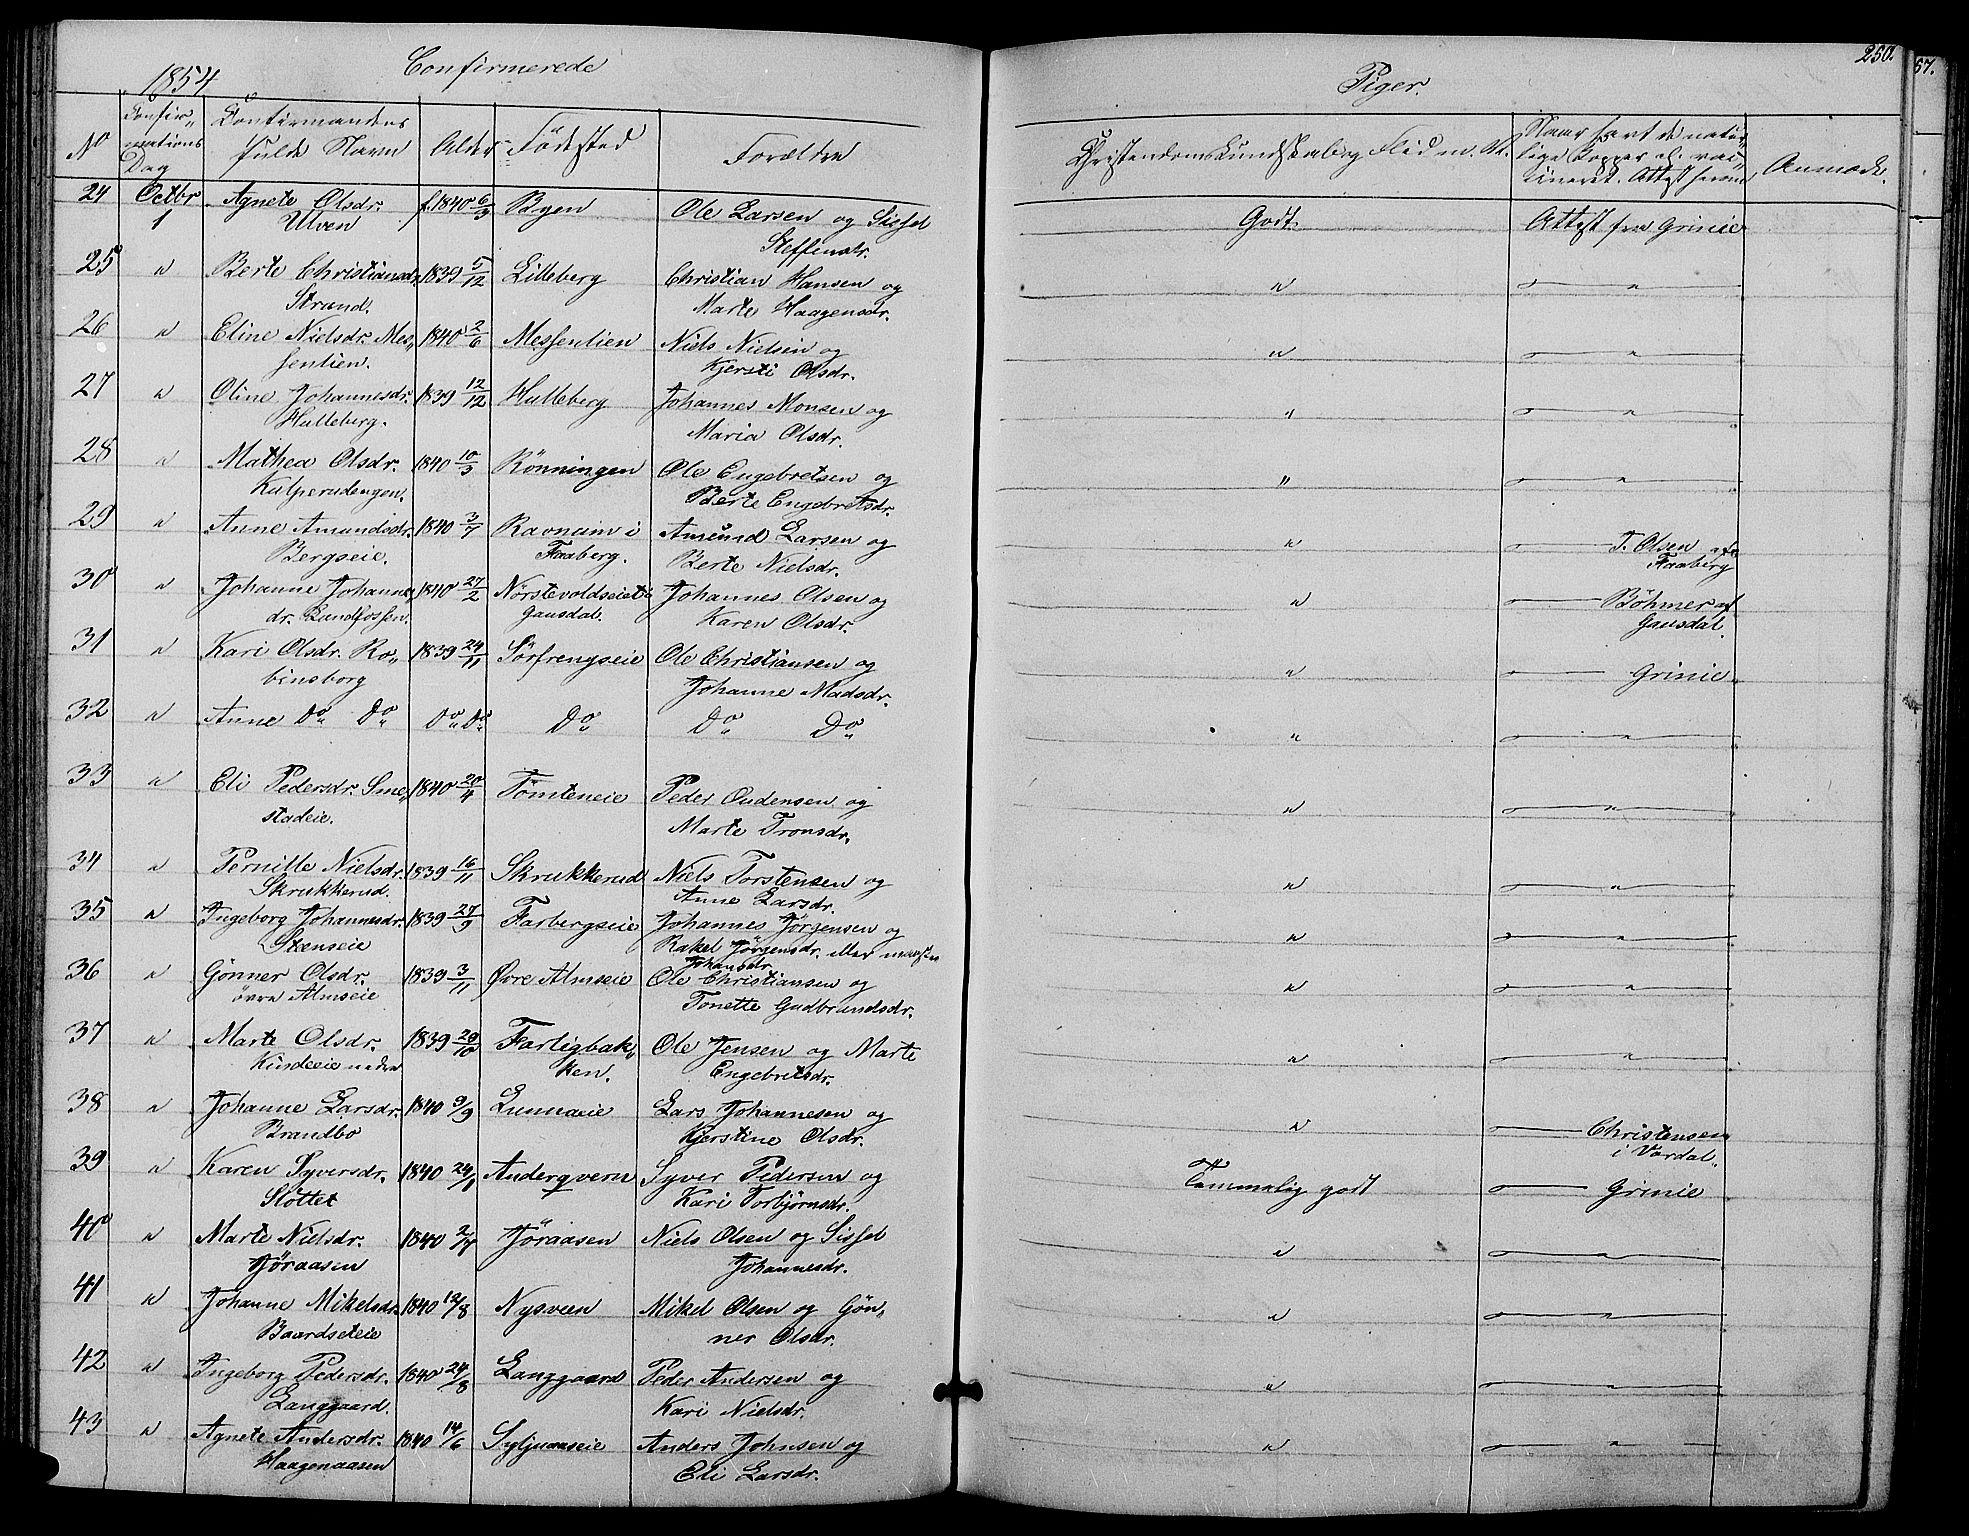 1854
Confirmerede
Piger.
250.
57.
No
Confir-
mations
Dag
Confirmandens
fulde Navn
Alder
Födested
Forældre
Christendoms Kundskab og Flid m. V.
Naar havt de natur-
lige Kopper el. vac-
cineret. Attest herom
Anmærk.
24 Octbr 1 Agnete Olsdr. f. 1840 6/3 Byen Ole Larsen og Sissel Godt. Attest fra Grinie
Ulven Steffensdr.
25 " Berte Christiansdr. 1839 5/12 Lilleberg Christian Hansen og " "
Strand. Marte Haagensdr.
26 " Eline Nielsdr. Mes- 1840 2/6 Messenlien Niels Nielsen og " "
senlien. Kjersti Olsdr.
27 " Oline Johannesdr. 1839 12/12 Hulleberg Johannes Monsen og " "
Hulleberg. Maria Olsdr.
28 " Mathea Olsdr. 1840 10/3 Rönningen Ole Engebretsen og " "
Kulperudengen. Berte Engebretsdr.
29 " Anne Amundsdr. 1840 3/7 Ravnum i Amund Larsen og " T. Olsen af
Bergseie. Faaberg. Berte Nielsdr. Faaberg
30 " Johanne Johannes 1840 27/2 Nörstevoldseiet i Johannes Olsen og " Böhmer af
dr. Lundfossen. Gausdal. Karen Olsdr. Gausdal.
31 " Kari Olsdr. Ro- 1839 24/11 Sörfrengseie Ole Christiansen og " Grinie
binsborg Johanne Madsdr.
32 " Anne Do Do Do Do Do Do Do " "
33 " Eli Pedersdr. Sme- 1840 20/4 Tömteneie Peder Oudensen og " "
stadeie. Marte Tronsdr.
34 " Pernille Nielsdr. 1839 16/11 Skrukkerud Niels Torstensen og " "
Skrukkerud. Anne Larsdr.
35 " Ingeborg Johannesdr. 1839 27/9 Farbergseie Johannes Jörgensen og " "
Stenseie Rakel Jörgensdr. eller
Johansdr.
36 " Gönner Olsdr. 1839 3/11 Øvre Almseie Ole Christiansen og " "
övre Almseie Tonette Gudbrandsdr.
37 " Marte Olsdr. 1839 29/10 Farligbak- Ole Jensen og Marte " "
nedre ken. Engebretsdr.
38 " Johanne Larsdr. 1840 9/9 Lunnaeie Lars Johannesen og " Christensen
Brandbo Kjerstine Olsdr. i Vardal.
39 " Karen Syversdr. 1840 24/1 Anderqvern Syver Pedersen og Temmelig godt Grinie
Slöttet Kari Torbjörnsdr.
40 " Marte Nielsdr. 1840 2/7 Jöraasen Niels Olsen og Sissel " "
Jöraasen Johannesdr.
41 " Johanne Mikelsdr. 1840 12/8 Nysveen Mikel Olsen og Gön- " "
Baardseteie ner Olsdr.
42 " Ingeborg Pedersdr. 1840 24/8 Langgaard Peder Andersen og " "
Langgaard. Kari Nielsdr.
43 " Agnete Andersdr. 1840 14/6 Syljuaaseie Anders Johnsen og " "
Haagenaasen Eli Larsdr.